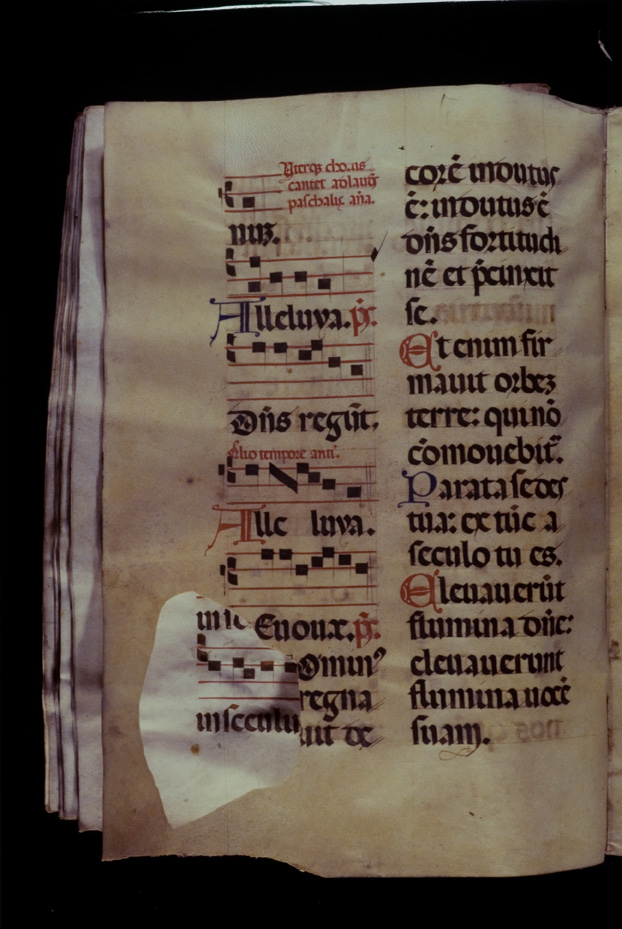 Uterq; chorus
cantet ad laud
paschalis aña.
nus.
Alleluya. p̃s.
Dñs regñt.
Alio tempore anã.
Alle luya.
Euouæ. p̃s.
Dominꝰ
regna
uit de
in seculu
corẽ indutus
ẽ: indutus ẽ
dñs fortitudi
nẽ et p̃cinxit
se.
Et enim fir
mauit orbeʒ
terre: qui nõ
cõmouebit̃.
Parata sedes
tua: ex tũc a
seculo tu es.
Eleuauerũt
flumina dñe:
eleuauerunt
flumina uocẽ
suam.